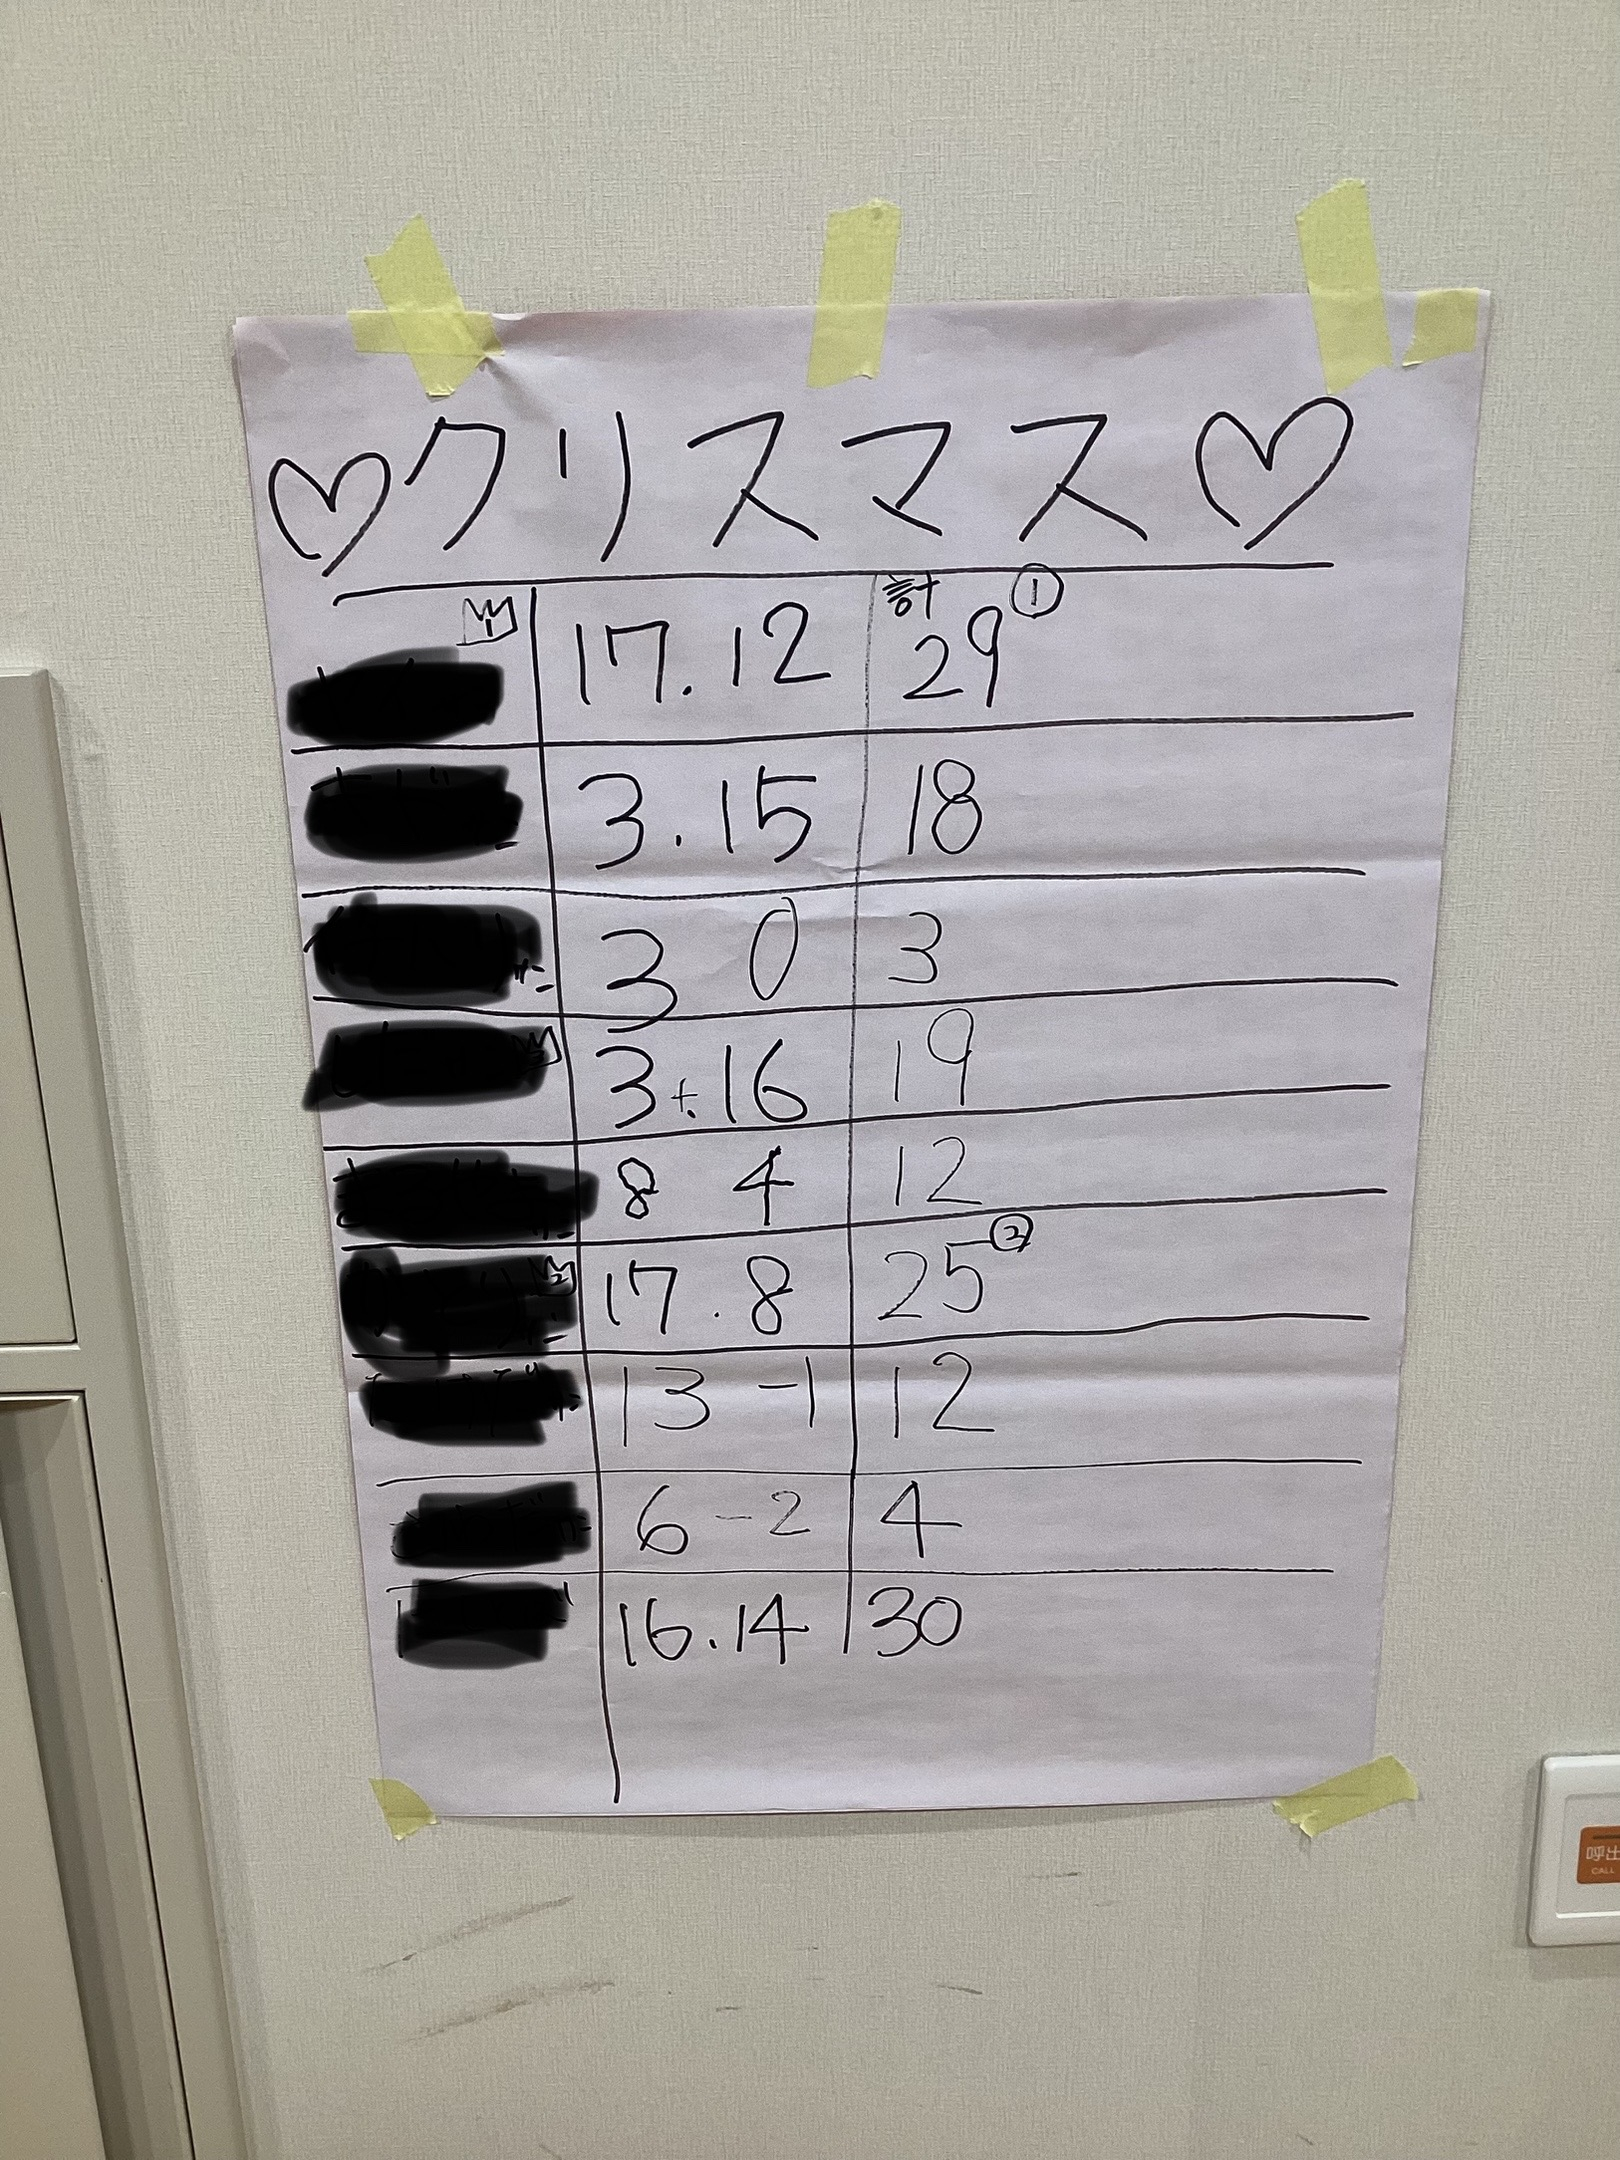 ♡クリスマス♡
1 17.12 計 29 ①
3.15 18
3 0 3
3+.16 19
8 4 12
2 17.8 25 ②
13 -1 12
6 -2 4
16.14 30
呼出
CALL